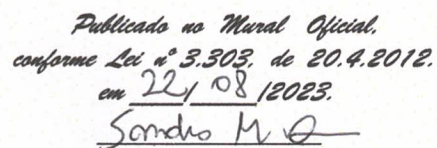 Publicado no Mural Oficial,
conforme Lei nº 3.303, de 20.4.2012.
em 22/ 08 /2023.